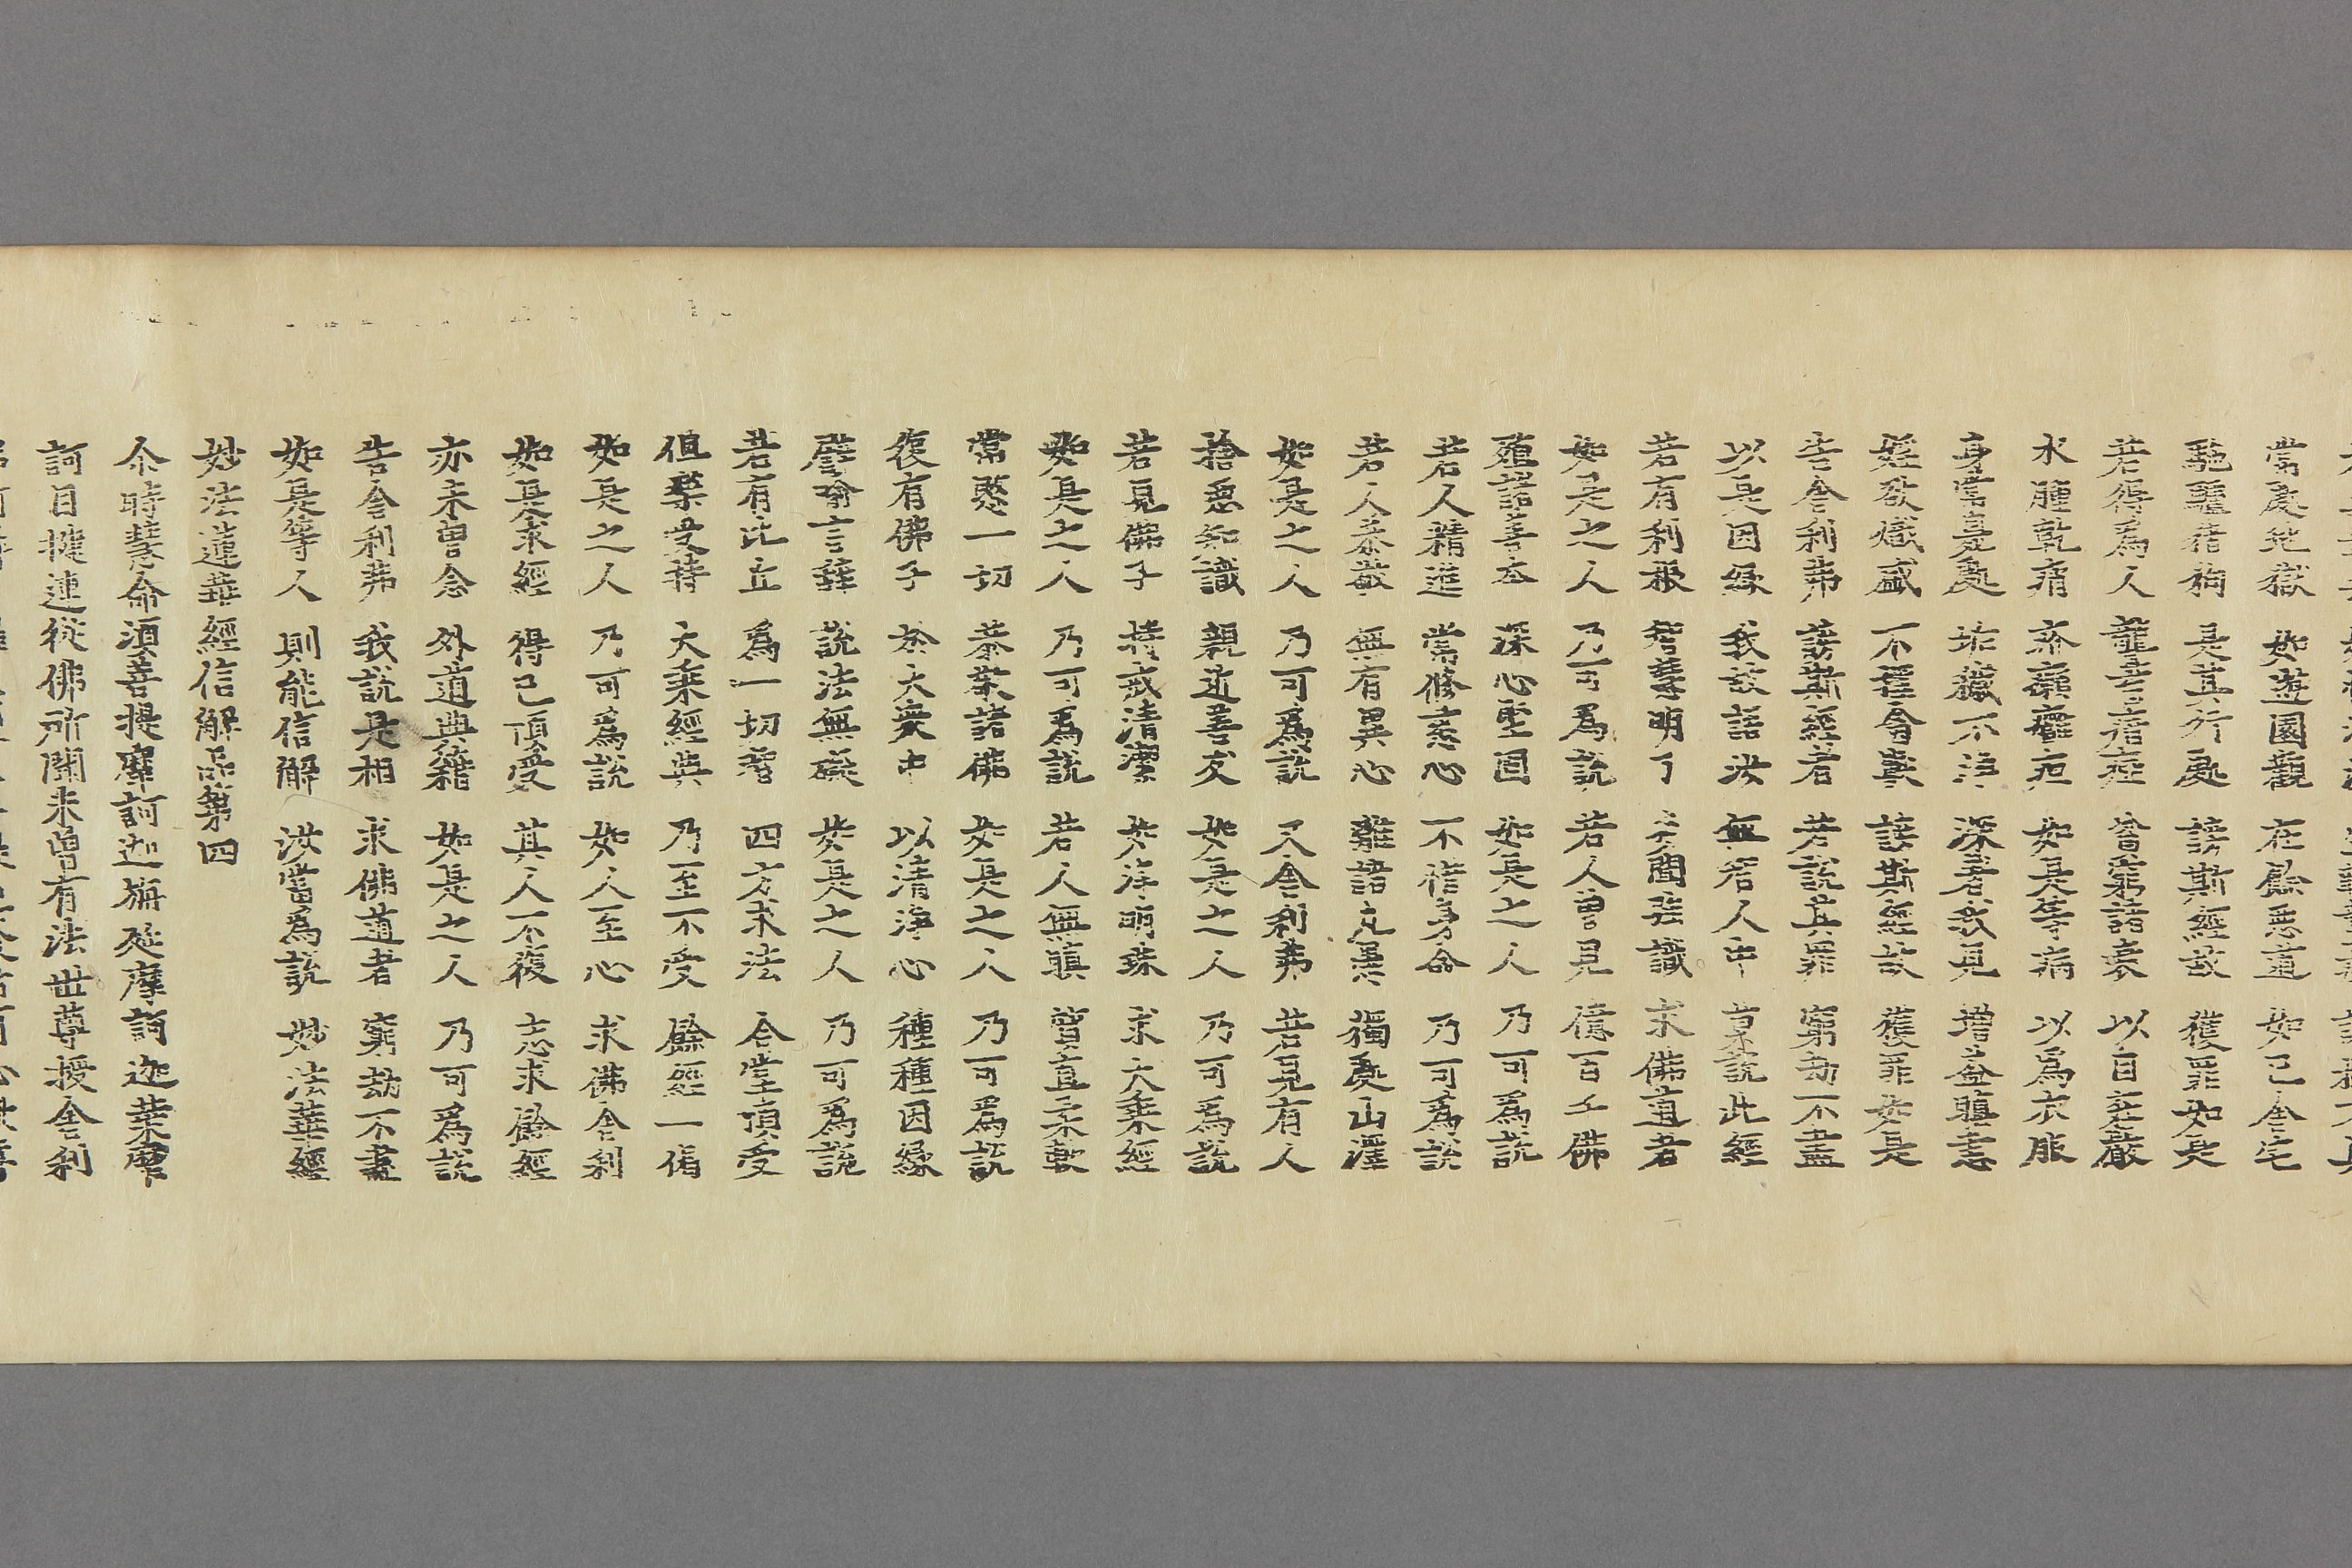 常處地獄 如遊園觀 在餘惡道 如己舍宅
駝驢猪狗 是其行處 謗斯經故 獲罪如是
若得爲人 聾盲瘖瘂 貧窮諸衰 以自莊嚴
水腫乾痟 疥癩癰疽 如是等病 以爲衣服
身常臭處 垢穢不淨 深著我見 增益瞋恚
婬欲熾盛 不擇禽獸 謗斯經故 獲罪如是
告舍利弗 謗斯經者 若說其罪 窮劫不盡
以是因緣 我故語汝 無智人中 莫說此經
若有利根 智慧明了 多聞强識 求佛道者
如是之人 乃可爲說 若人曾見 億百千佛
殖諸善本 深心堅固 如是之人 乃可爲說
若人精進 常修慈心 不惜身命 乃可爲說
若人恭敬 無有異心 離諸凡愚 獨處山澤
如是之人 乃可爲說 又舍利弗 若見有人
捨惡知識 親近善友 如是之人 乃可爲說
若見佛子 持戒清潔 如淨明珠 求大乘經
如是之人 乃可爲說 若人無瞋 質直柔軟
常愍一切 恭敬諸佛 如是之人 乃可爲說
復有佛子 於大衆中 以清淨心 種種因緣
譬喻言辭 說法無礙 如是之人 乃可爲說
若有比丘 爲一切智 四方求法 合掌頂受
但樂受持 大乘經典 乃至不受 餘經一偈
如是之人 乃可爲說 如人至心 求佛舍利
如是求經 得已頂受 其人不復 志求餘經
亦未曾念 外道典籍 如是之人 乃可爲說
告舍利弗 我說是相 求佛道者 窮劫不盡
如是等人 則能信解 汝當爲說 妙法華經
妙法蓮華經信解品第四
尒時慧命須菩提摩訶迦旃延摩訶迦葉摩
訶目揵連從佛所聞未曾有法世尊授舍利